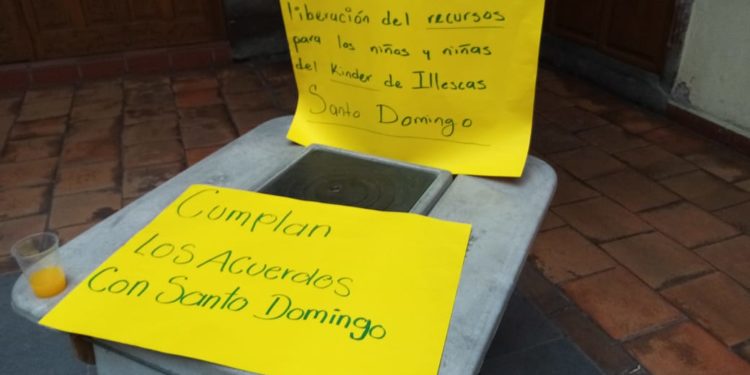 liberación del recursos
para los niños y niñas
del Kinder de Illescas
Santo Domingo
Cumplan
Los Acuerdos
Con Santo Domingo